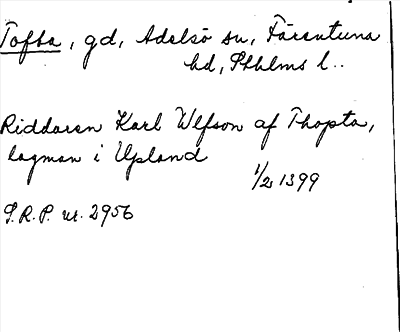 Tofta, gd, Adelsö sn, Färentuna
hd, Sthlms l..
Riddaren Karl Ulfson af Thopta,
lagman i Upland
1/2 1399
S.R.P. nr. 2956